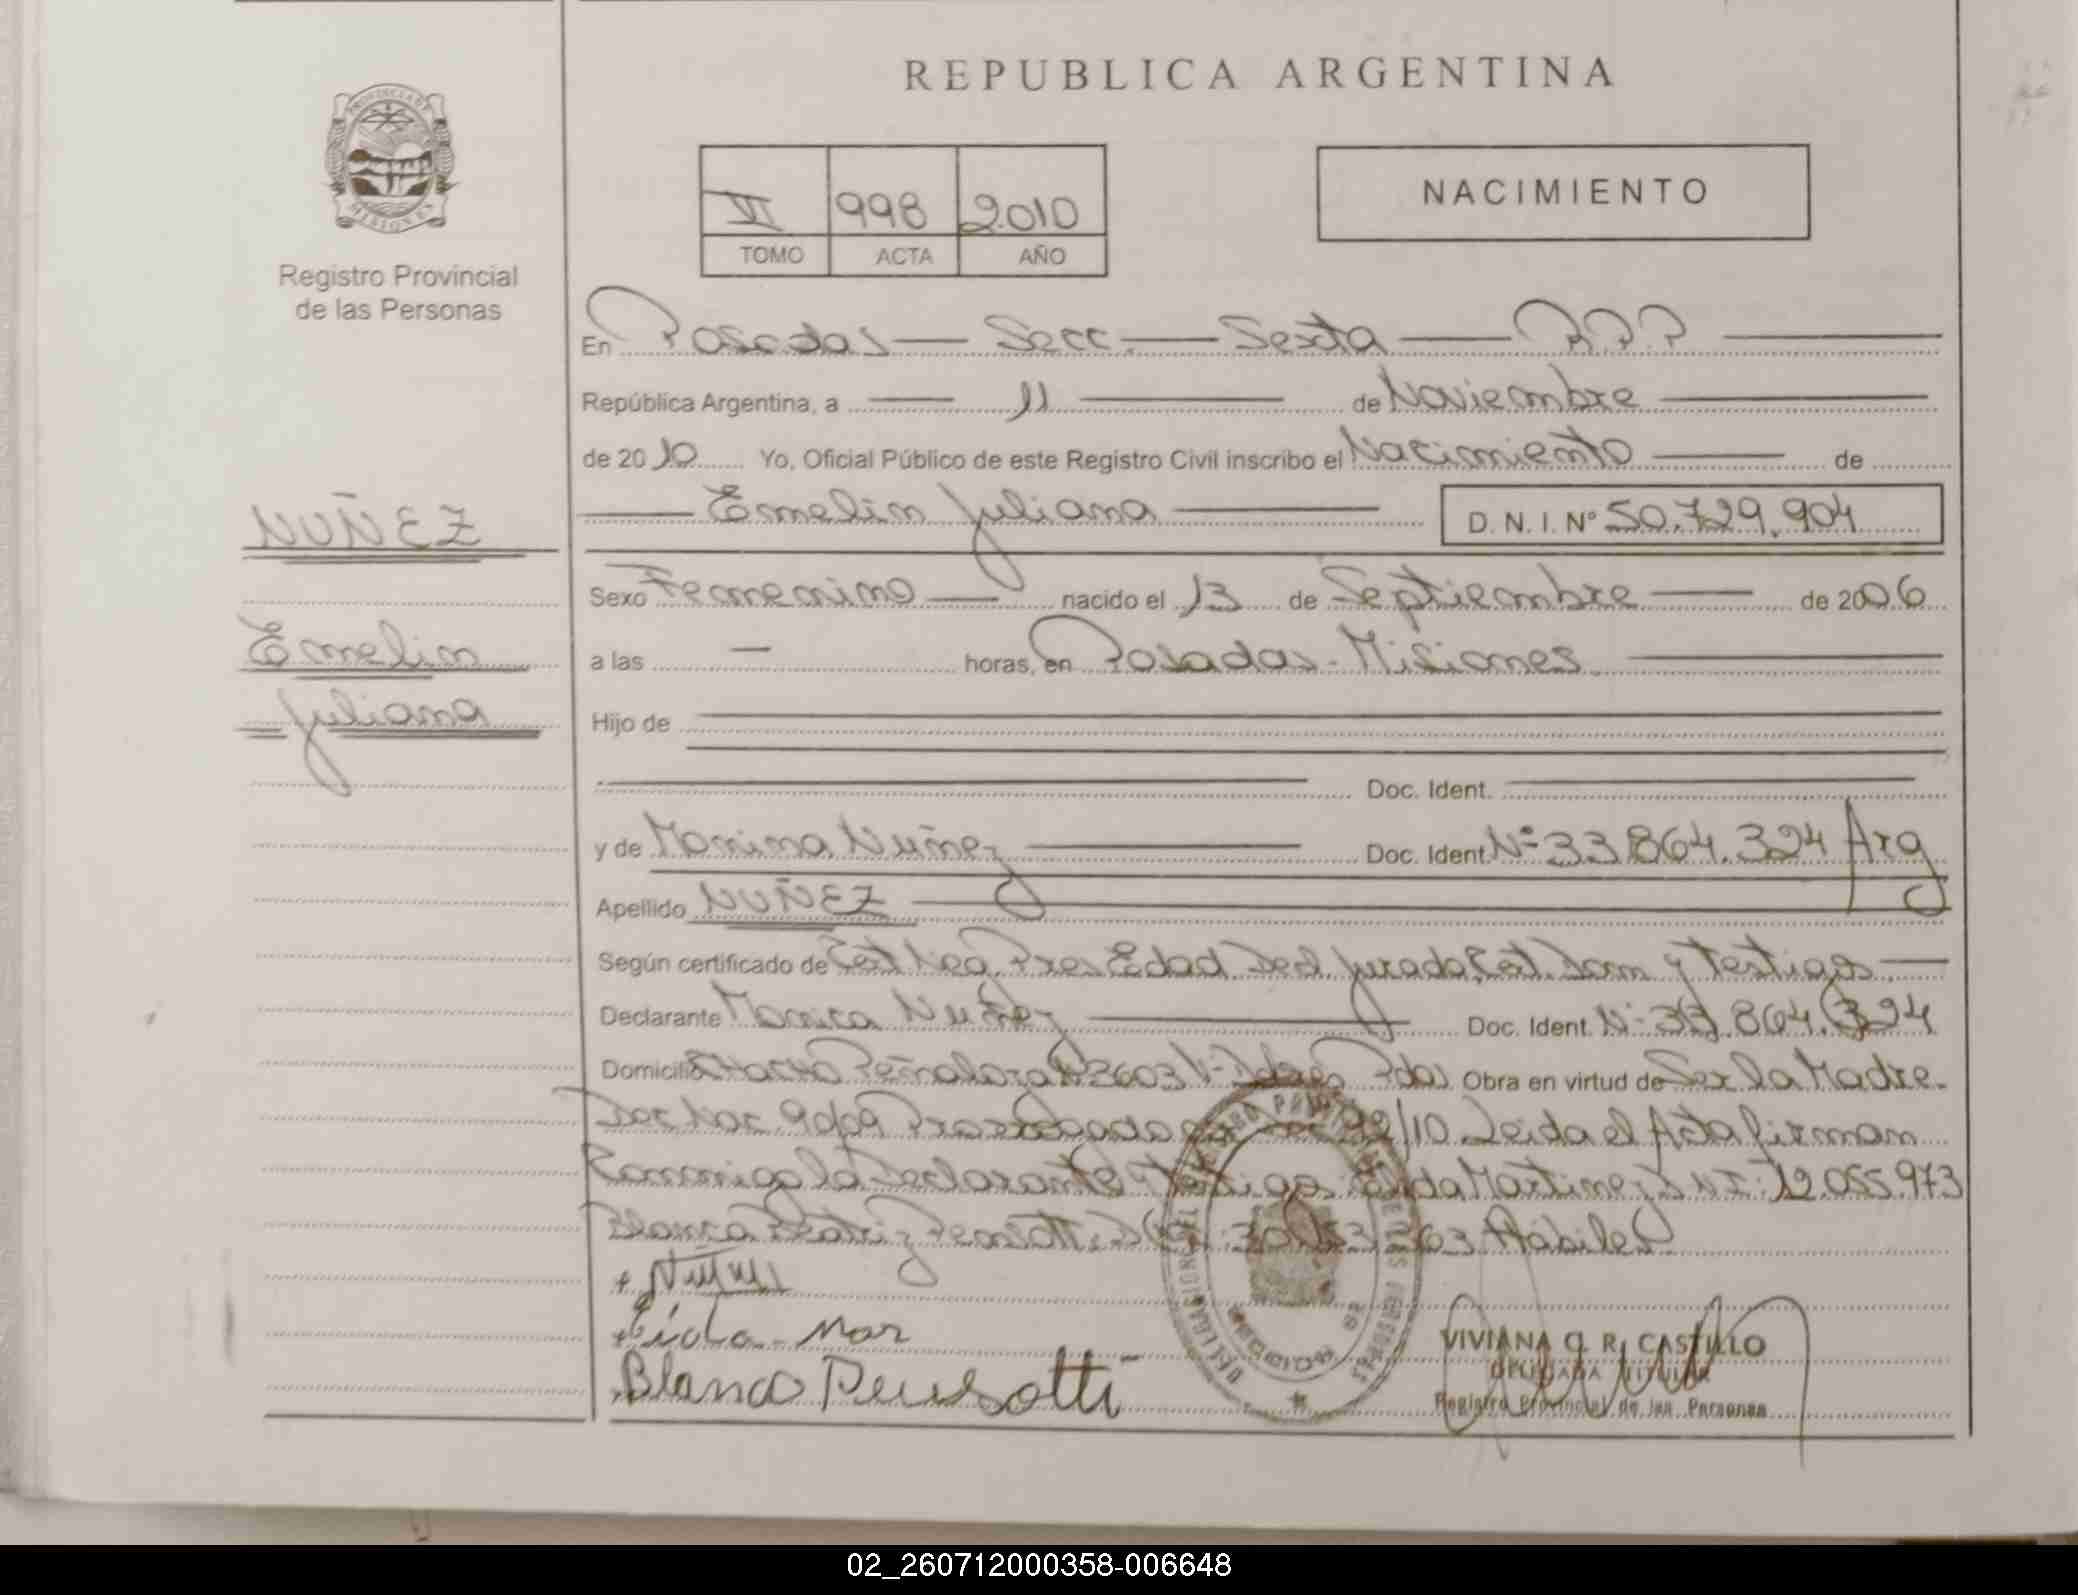 REPUBLICA ARGENTINA
PROVINCIA DE
MISIONES
Registro Provincial
de las Personas
VI 998 2.010
TOMO ACTA AÑO
NACIMIENTO
En Posadas — Secc. — Sexta — R.P.P
República Argentina, a — 11 — de Noviembre
de 2010 Yo, Oficial Público de este Registro Civil inscribo el Nacimiento — de
Emelin Juliana — D. N. I. Nº 50.729.904
NUÑEZ
Emelin
Juliana
Sexo Femenino — nacido el 13 de Septiembre — de 2006
a las — horas, en Posadas - Misiones
Hijo de
Doc. Ident.
y de Nuñez — Doc. Ident. Nº 33.864.324 Arg
Apellido NUÑEZ
Según certificado de Neg. Pres. Edad Jurada y Testigos
Declarante Monica Nuñez — Doc. Ident. Nº 33.864.324
Domicilio Peñaloza Pdas Obra en virtud de Ser la Madre.
/10. Leida el Acta firman
Conmigo la Declarante y Testigos Martinez 12.055.973
Blanca Beatriz Hábiles
Mar
Blanca
VIVIANA C. R. CASTILLO
DELEGADA TITULAR
Registro Provincial de las Personas
02_260712000358-006648